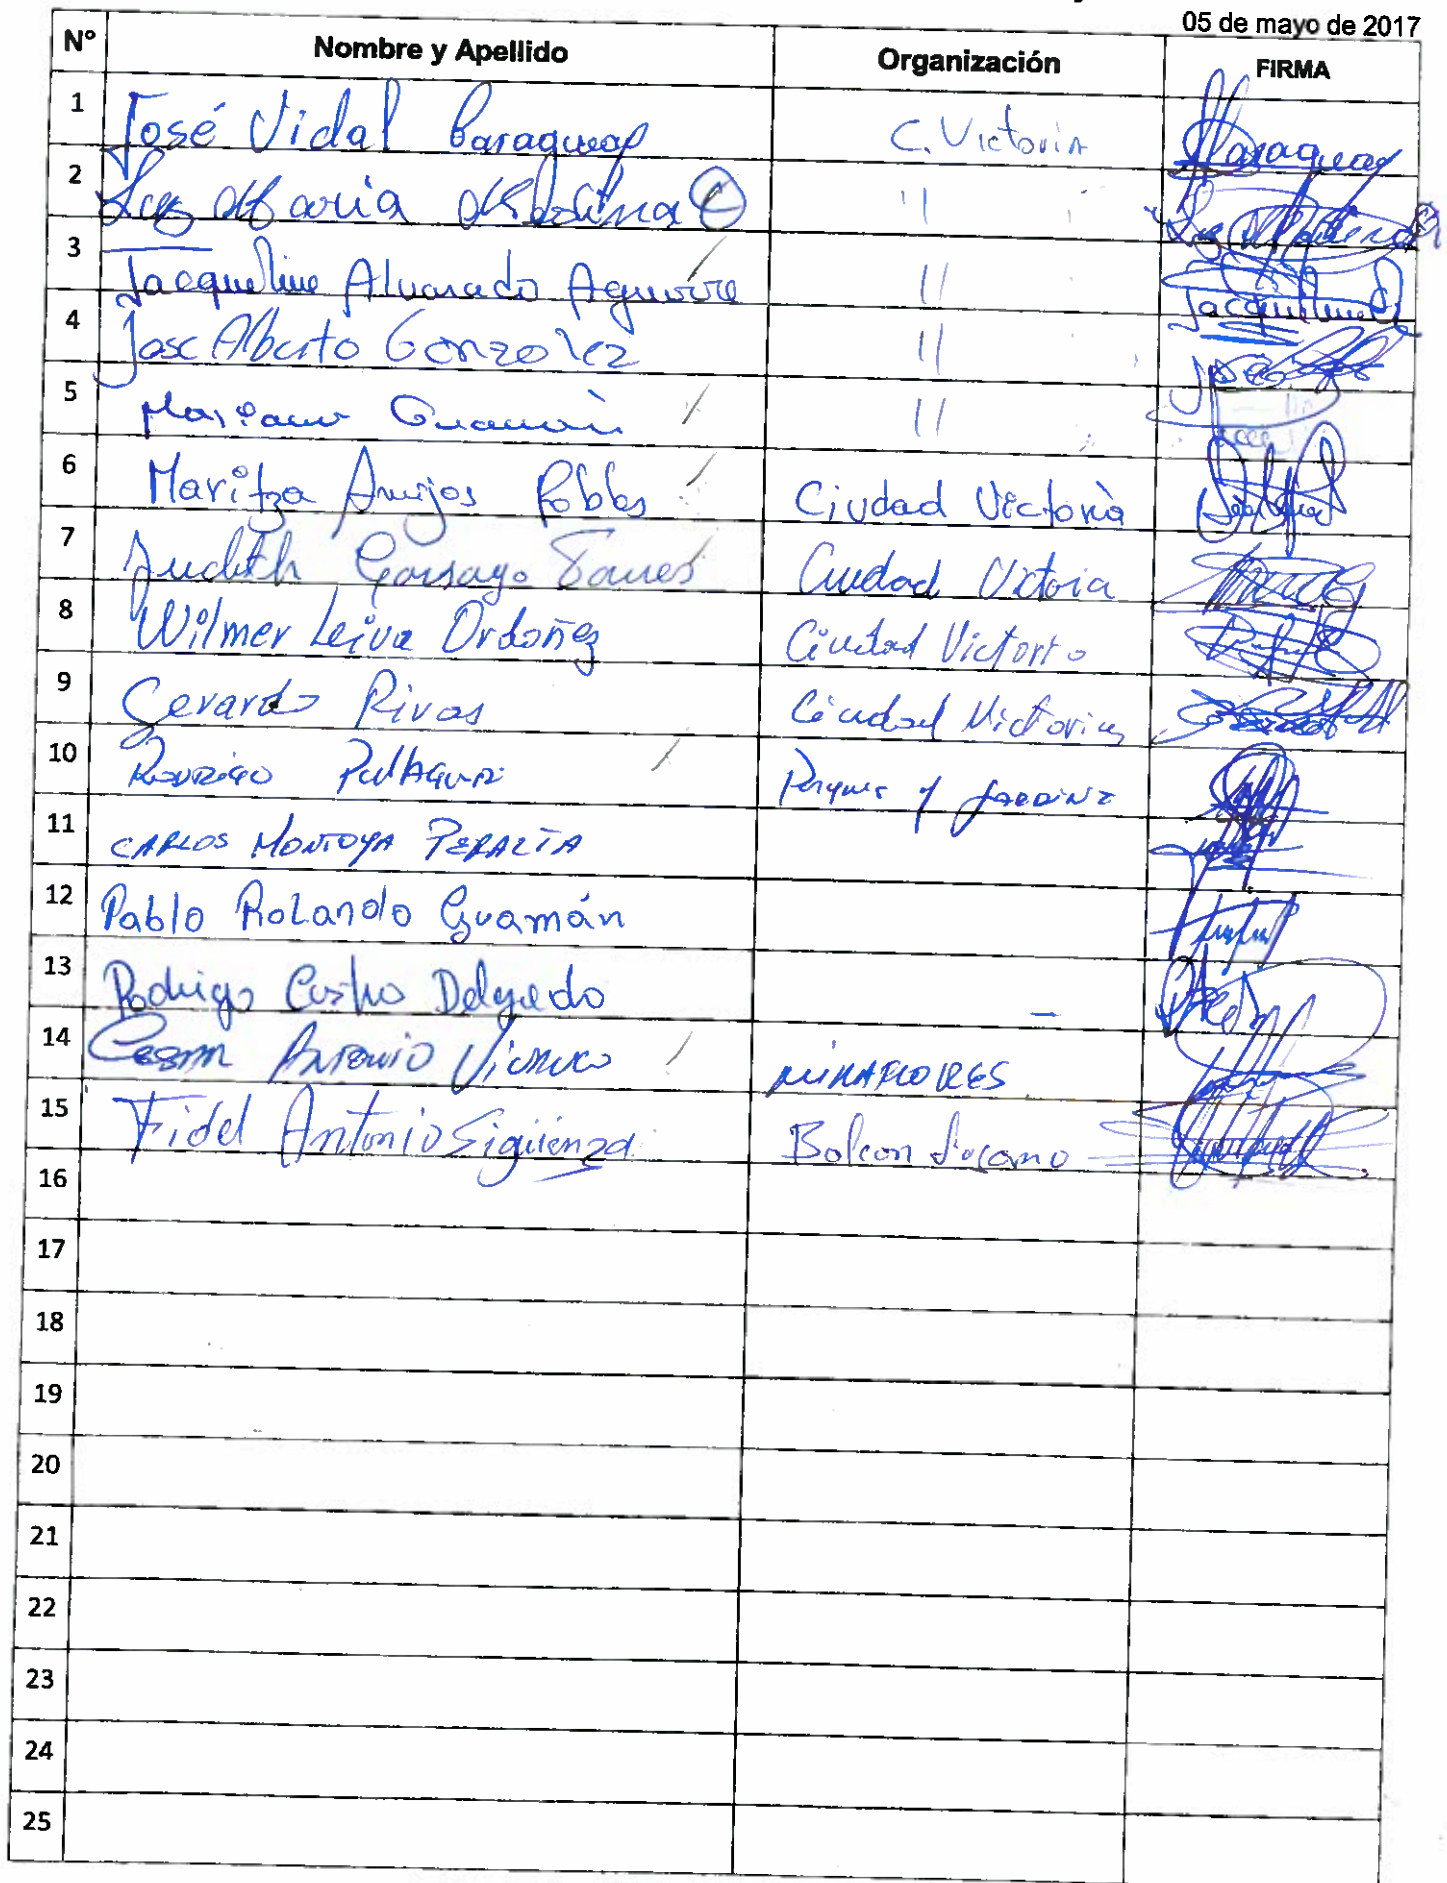 05 de mayo de 2017
N° Nombre y Apellido Organización FIRMA
1 José Vidal Paraguay C. Victoria
2 Luz Maria Molina " "
3 Jacqueline Alvarado Aguirre "
4 Jose Alberto Gonzolez "
5 Mariano Guamán "
6 Maritza Armijos Robles Ciudad Victoria
7 Judith Ciudad Victoria
8 Wilmer Leiva Ordoñez Ciudad Victoria
9 Gerardo Rivas Ciudad Victoria
10 Rodrigo Pullaguari Parques y Jardinz
11 CARLOS MONTOYA PERALTA
12 Pablo Rolando Guamán
13 Rodrigo Castro Delgado –
14 Cesar Antonio MIRAFLORES
15 Fidel Antonio Sigüenza Bolcon
16
17
18
19
20
21
22
23
24
25